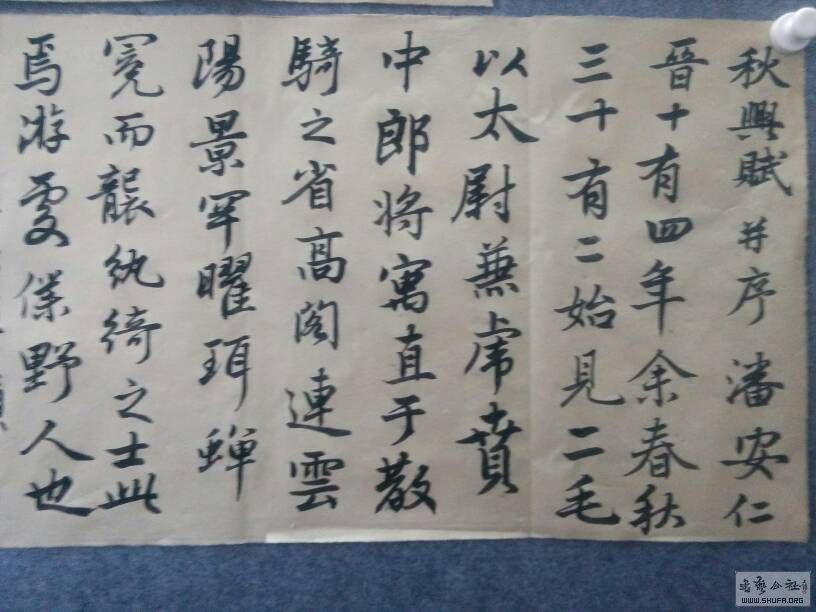 秋興賦并序潘安仁
晉十有四年余春秋
三十有二始見二毛
以太尉兼虎賁
中郎將寓直于散
騎之省高閣連雲
陽景罕曜珥蟬
冕而襲紈綺之士此
焉游處僕野人也
書藝公社
WWW.SHUFA.ORG